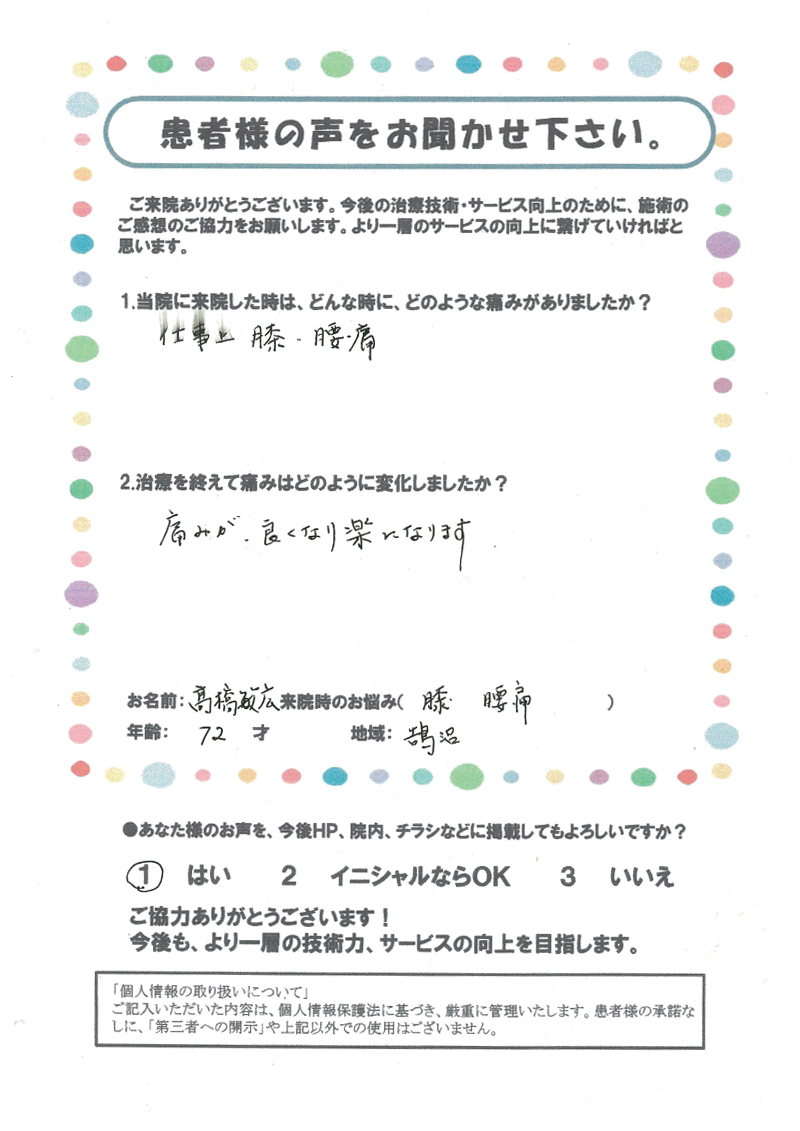 患者様の声をお聞かせ下さい。
ご来院ありがとうございます。今後の治療技術・サービス向上のために、施術の
ご感想のご協力をお願いします。より一層のサービスの向上に繋げていければと
思います。
1.当院に来院した時は、どんな時に、どのような痛みがありましたか？
仕事上 膝・腰痛
2.治療を終えて痛みはどのように変化しましたか？
痛みが、良くなり楽になります
お名前：高橋敏広 来院時のお悩み（ 膝 腰痛 ）
年齢： 72 才 地域： 鵠沼
●あなた様のお声を、今後HP、院内、チラシなどに掲載してもよろしいですか？
1 はい 2 イニシャルならOK 3 いいえ
ご協力ありがとうございます！
今後も、より一層の技術力、サービスの向上を目指します。
「個人情報の取り扱いについて」
ご記入いただいた内容は、個人情報保護法に基づき、厳重に管理いたします。患者様の承諾な
しに、「第三者への開示」や上記以外での使用はございません。